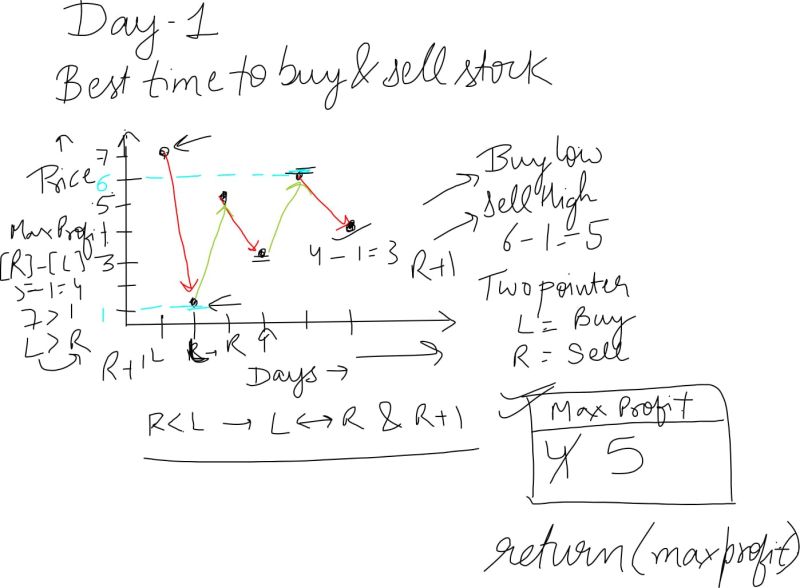 Day-1
Best time to buy & sell stock
Price
7
6
5
3
1
Max Profit
[R]-[L]
5-1=4
7>1
L>R
R+1
L
R
Days →
4-1=3
R+1
Buy low
Sell High
6-1=5
Two pointer
L = Buy
R = Sell
R<L → L↔R & R+1
Max Profit
4 5
return(maxprofit)